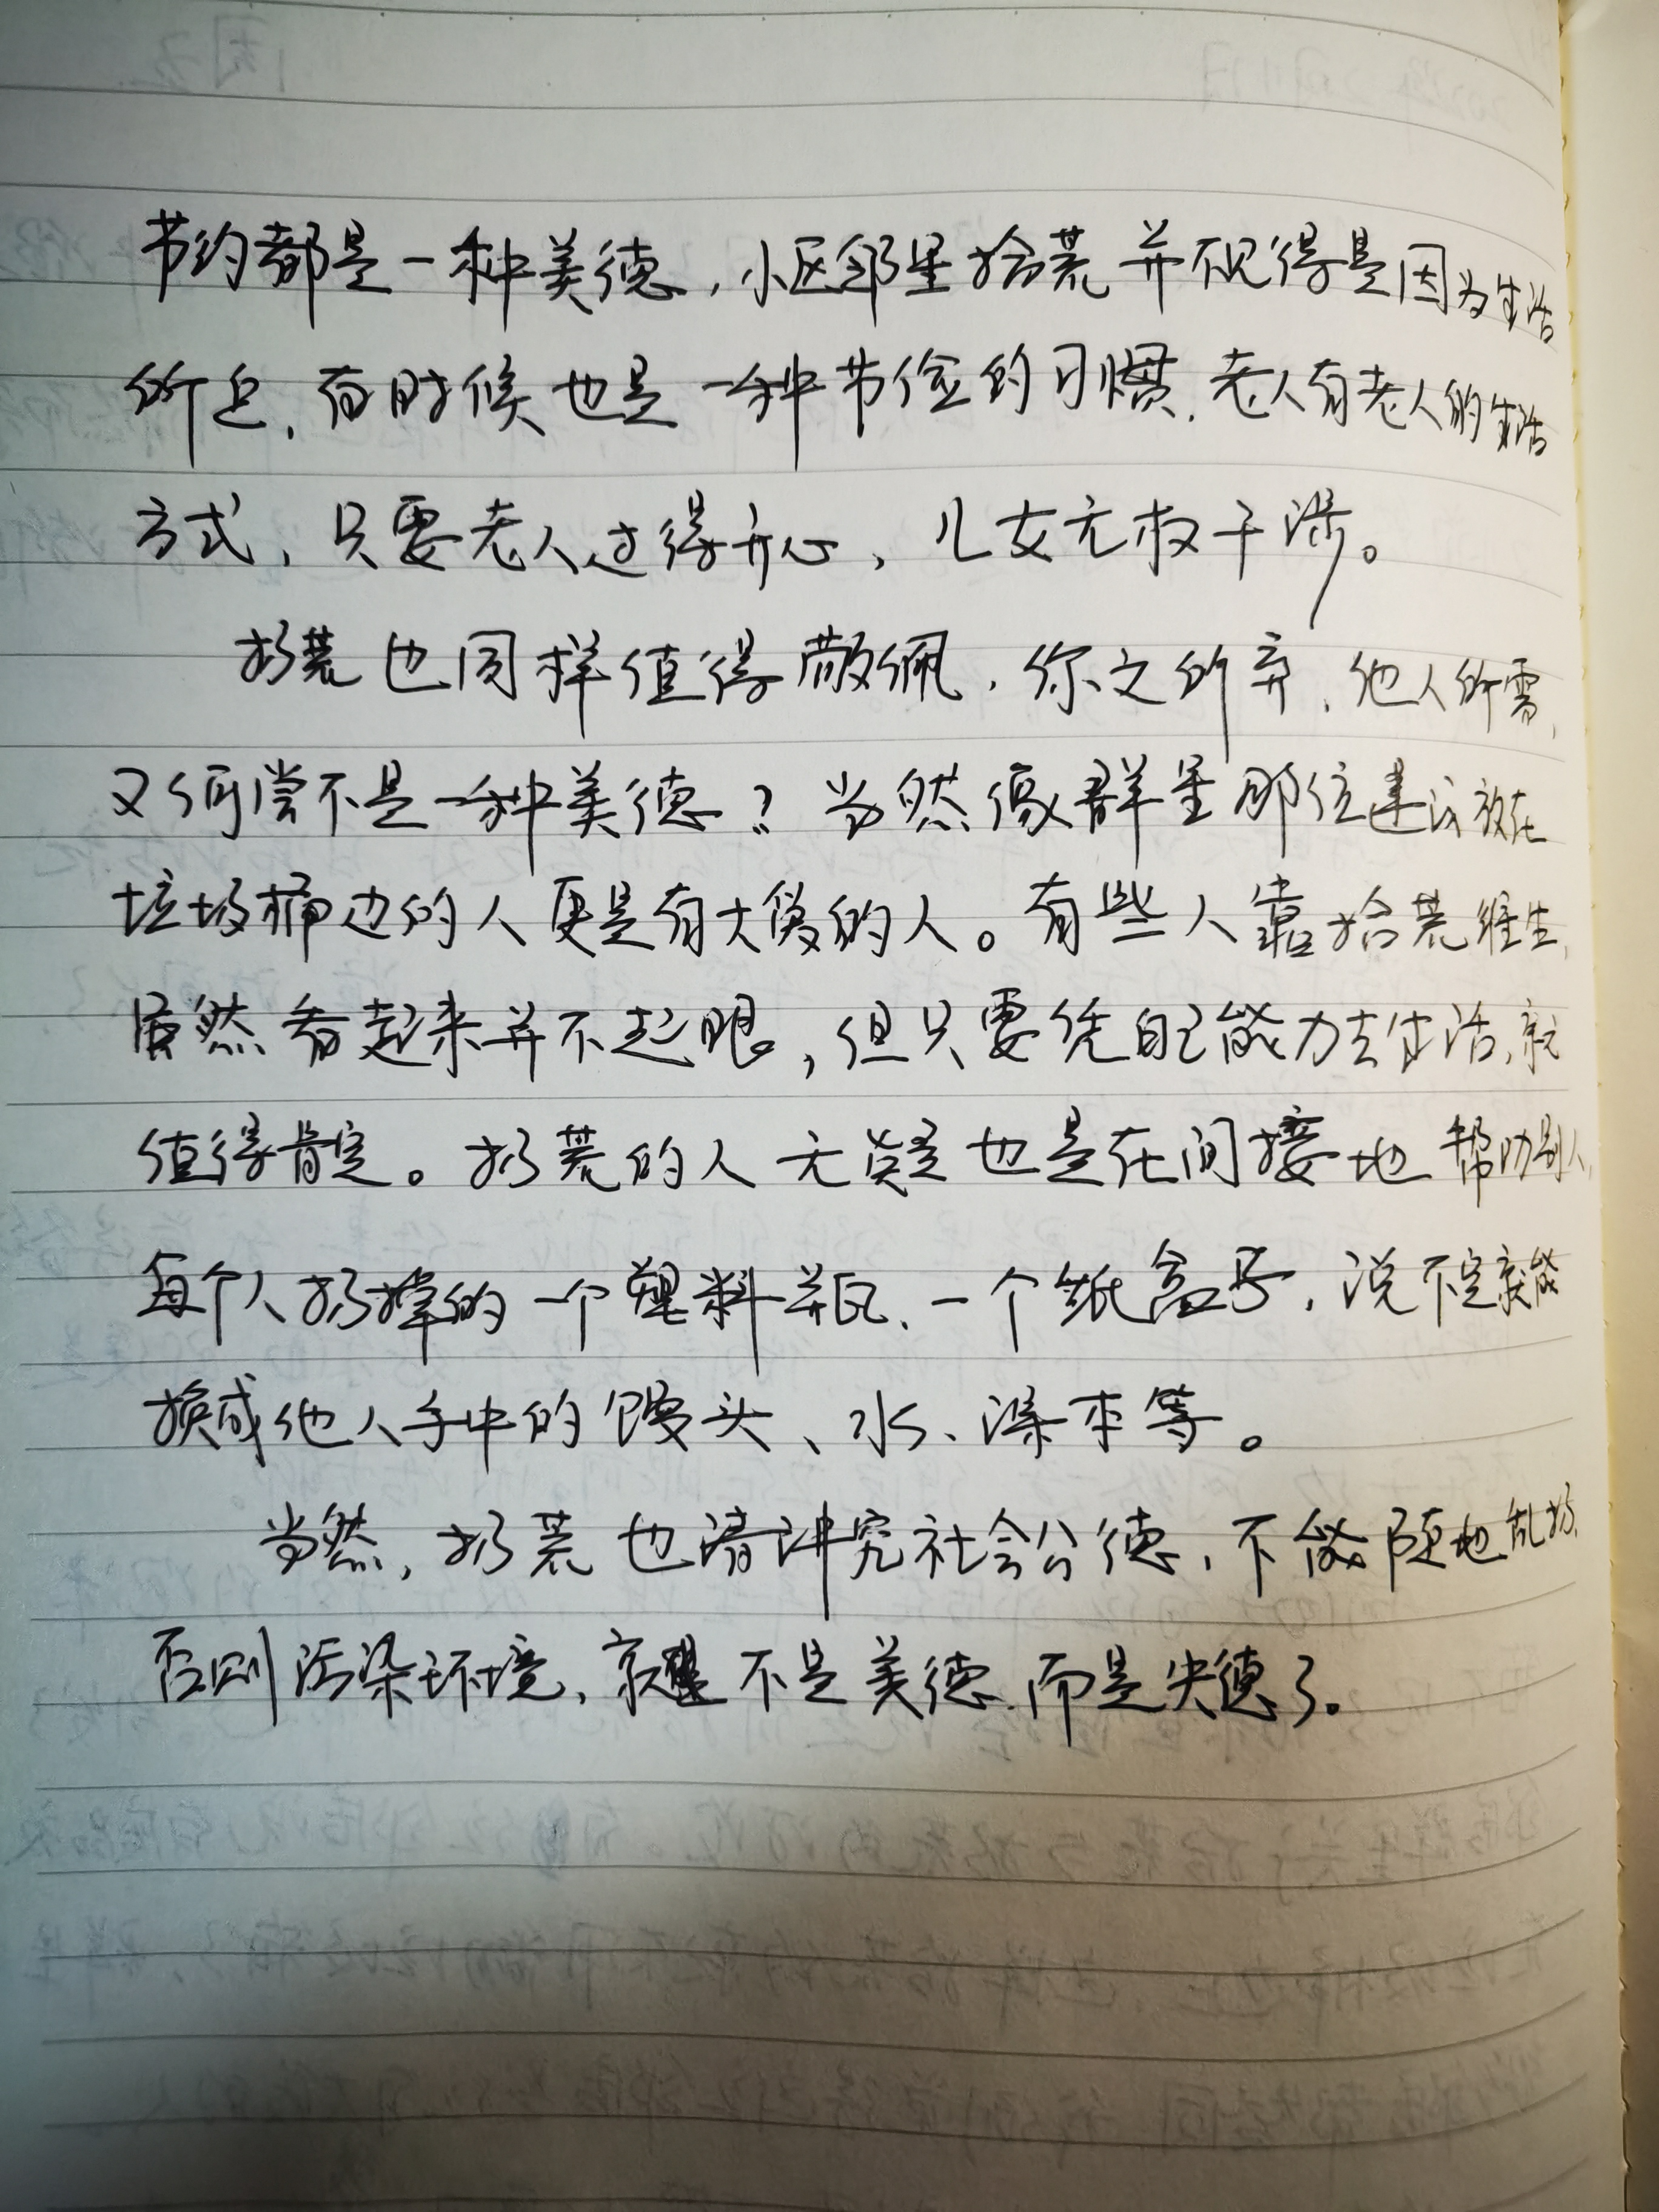 节约都是一种美德，小区邻里拾荒并不见得是因为生活
所迫，有时候也是一种节俭的习惯，老人有老人的生活
方式，只要老人过得开心，儿女无权干涉。
扔荒也同样值得敬佩，你之所弃，他人所需，
又何尝不是一种美德？当然像群里那位建议放在
垃圾桶边的人更是有大爱的人。有些人靠拾荒维生，
虽然看起来并不起眼，但只要凭自己能力去生活，就
值得肯定。扔荒的人无疑也是在间接地帮助别人，
每个人扔掉的一个塑料瓶、一个纸盒子，说不定就能
换成他人手中的馒头、水、深来等。
当然，扔荒也请讲究社会公德，不能随地乱扔，
否则污染环境，就是不是美德，而是失德了。